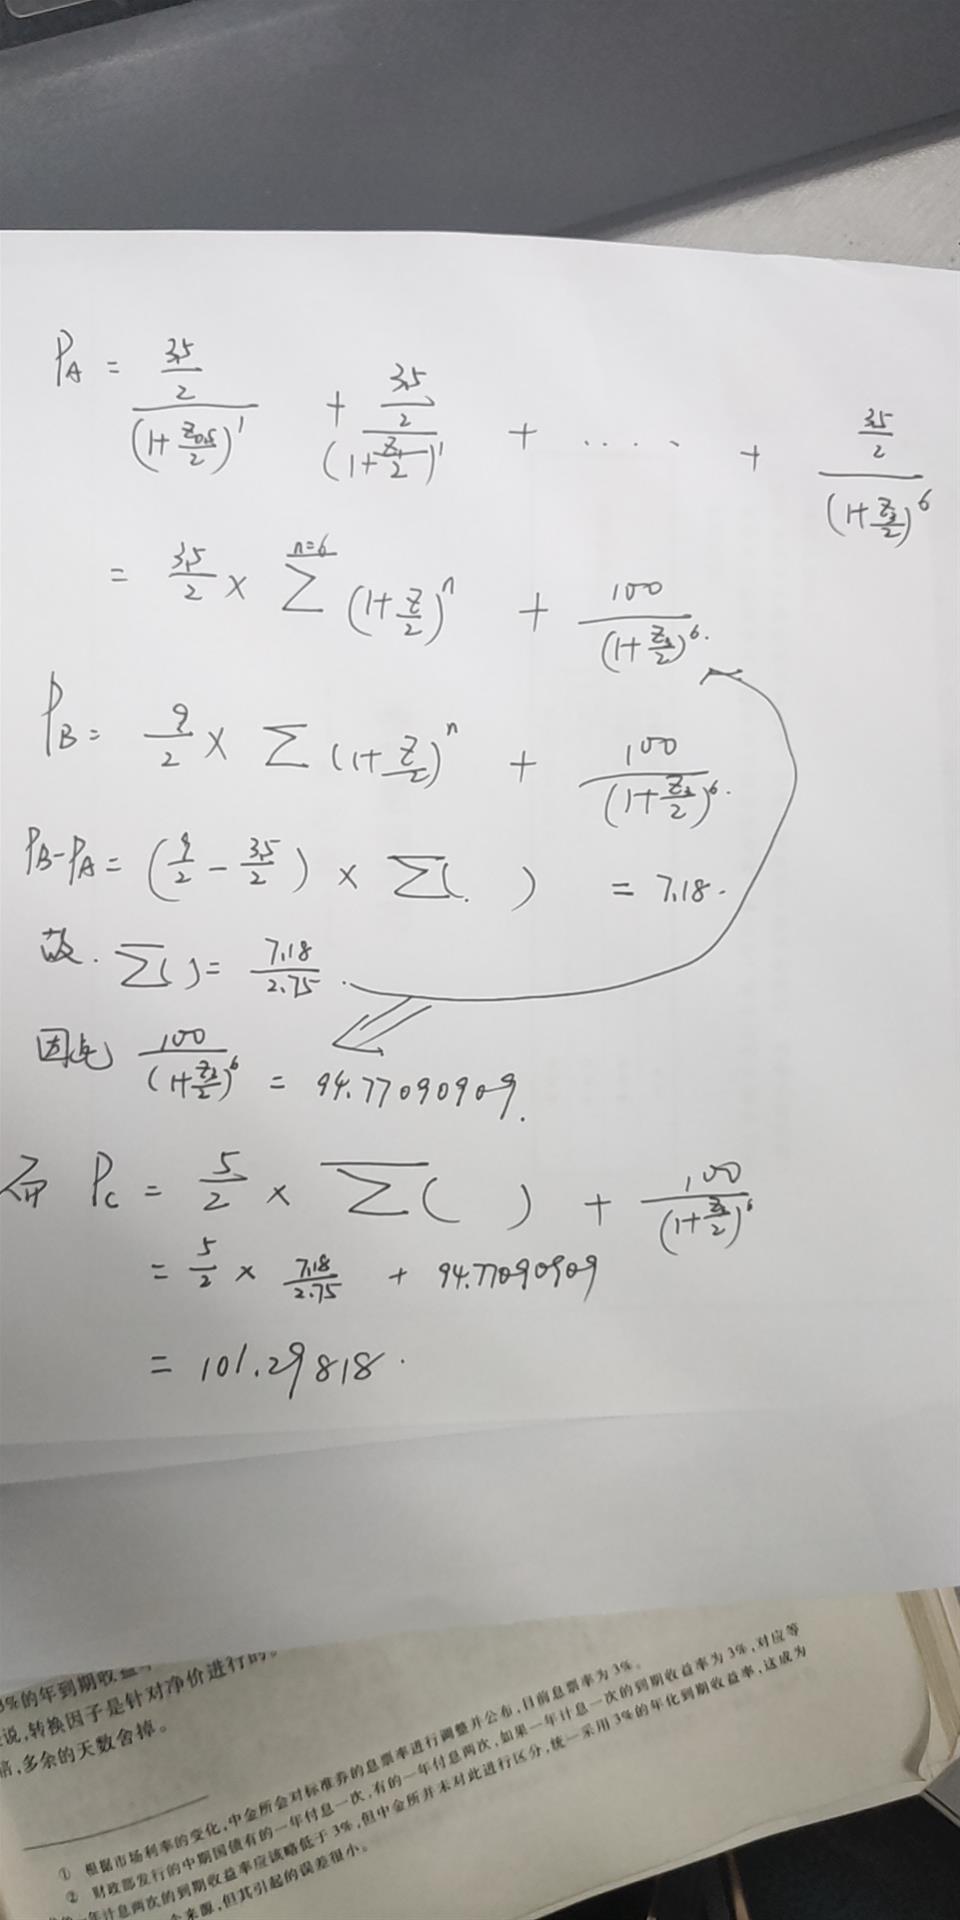 P_A = \frac{\frac{3.5}{2}}{(1+\frac{z_{0.5}}{2})^1} + \frac{\frac{3.5}{2}}{(1+\frac{z_1}{2})^1} + .... + \frac{\frac{3.5}{2}}{(1+\frac{z_3}{2})^6}
= \frac{3.5}{2} × \sum^{n=6} (1+\frac{z}{2})^n + \frac{100}{(1+\frac{z_3}{2})^6}.
P_B = \frac{9}{2} × \sum (1+\frac{z}{2})^n + \frac{100}{(1+\frac{z_3}{2})^6}.
P_B-P_A = (\frac{9}{2} - \frac{3.5}{2}) × \sum( ) = 7.18.
故. \sum( ) = \frac{7.18}{2.75}.
因此 \frac{100}{(1+\frac{z_3}{2})^6} = 94.77090909.
而 P_C = \frac{5}{2} × \sum( ) + \frac{100}{(1+\frac{z_3}{2})^6}
= \frac{5}{2} × \frac{7.18}{2.75} + 94.77090909
= 101.29818.
3%的年到期收益率
说,转换因子是针对净价进行的。
倍,多余的天数舍掉。
① 根据市场利率的变化,中金所会对标准券的息票率进行调整并公布,目前息票率为3%。
② 财政部发行的中期国债有的一年付息一次,有的一年付息两次,如果一年计息一次的到期收益率为3%,对应等
年计息两次的到期收益率应该略低于3%,但中金所并未对此进行区分,统一采用3%的年化到期收益率,这成为
个来源,但其引起的误差很小。